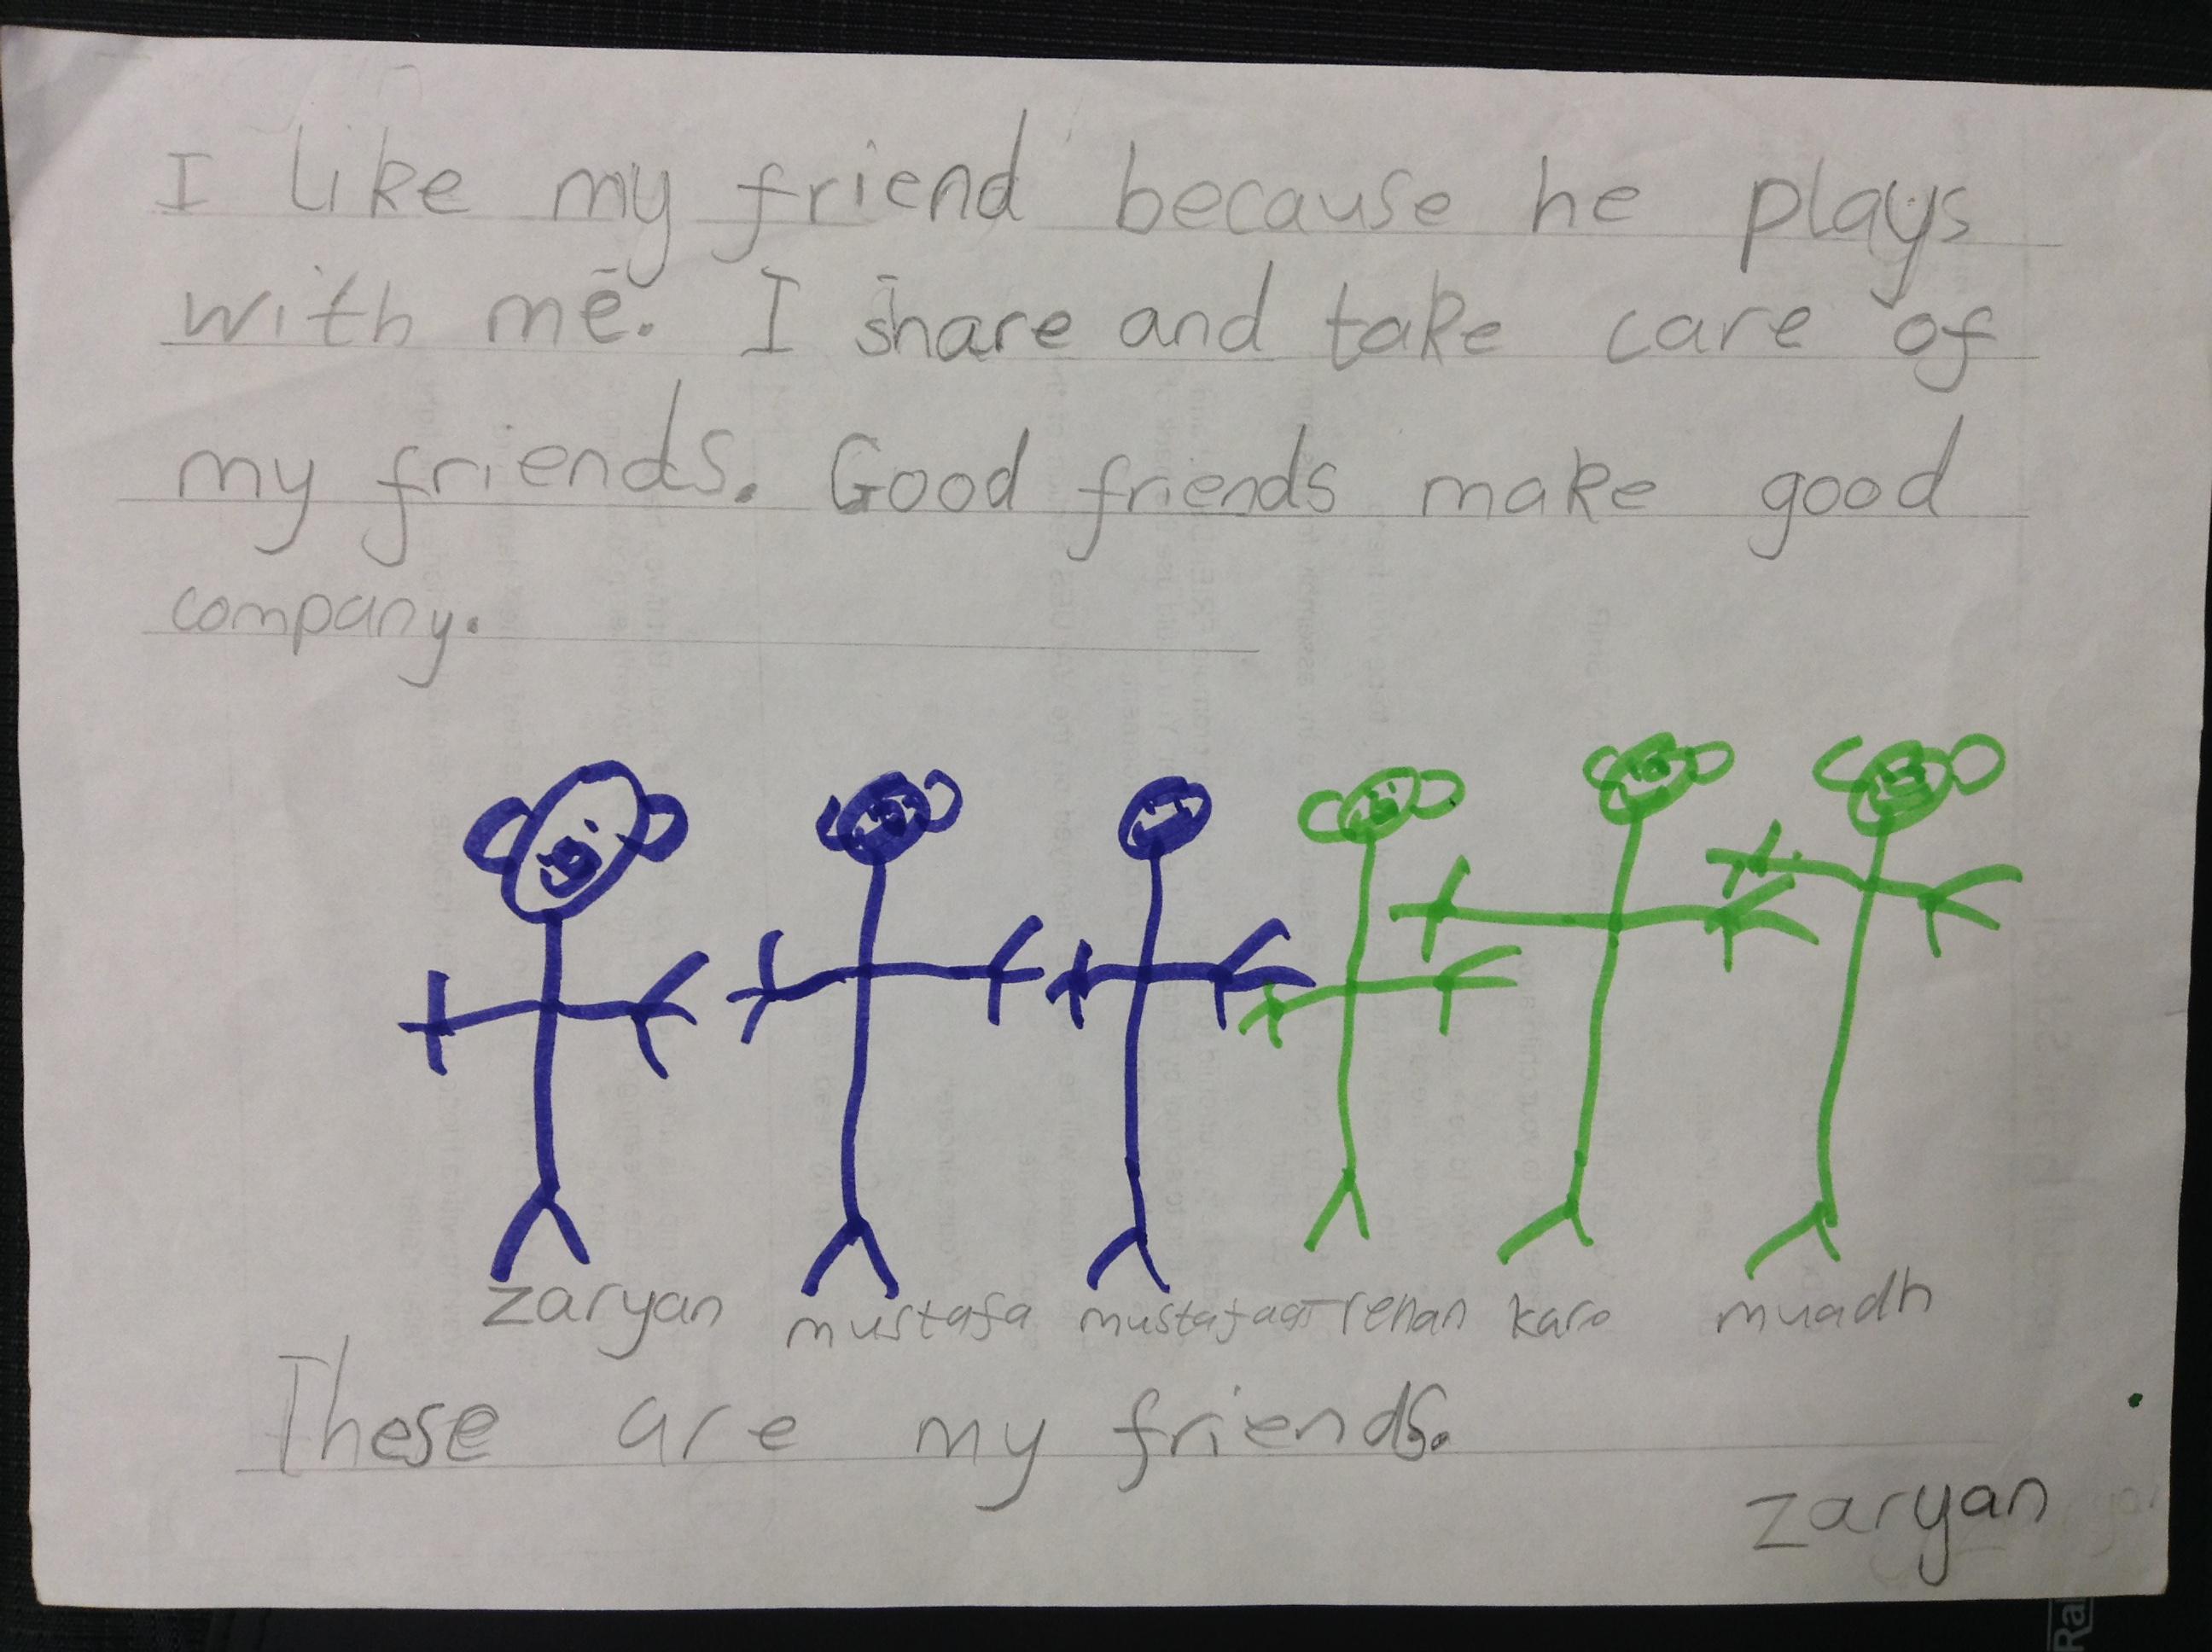 I like my friend because he plays
with me. I share and take care of
my friends. Good friends make good
company.
zaryan mustafa renan karo muadh
These are my friends.
zaryan
Ra